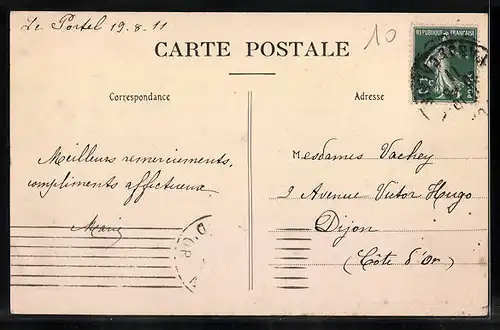 Le Portel 19-8-11
10
CARTE POSTALE
Correspondance
Adresse
REPUBLIQUE FRANÇAISE
Meilleurs remerciements,
compliments affectueux
Marie
Mesdames Vachey
9 Avenue Victor Hugo
Dijon
(Côte d'Or)
D'OR